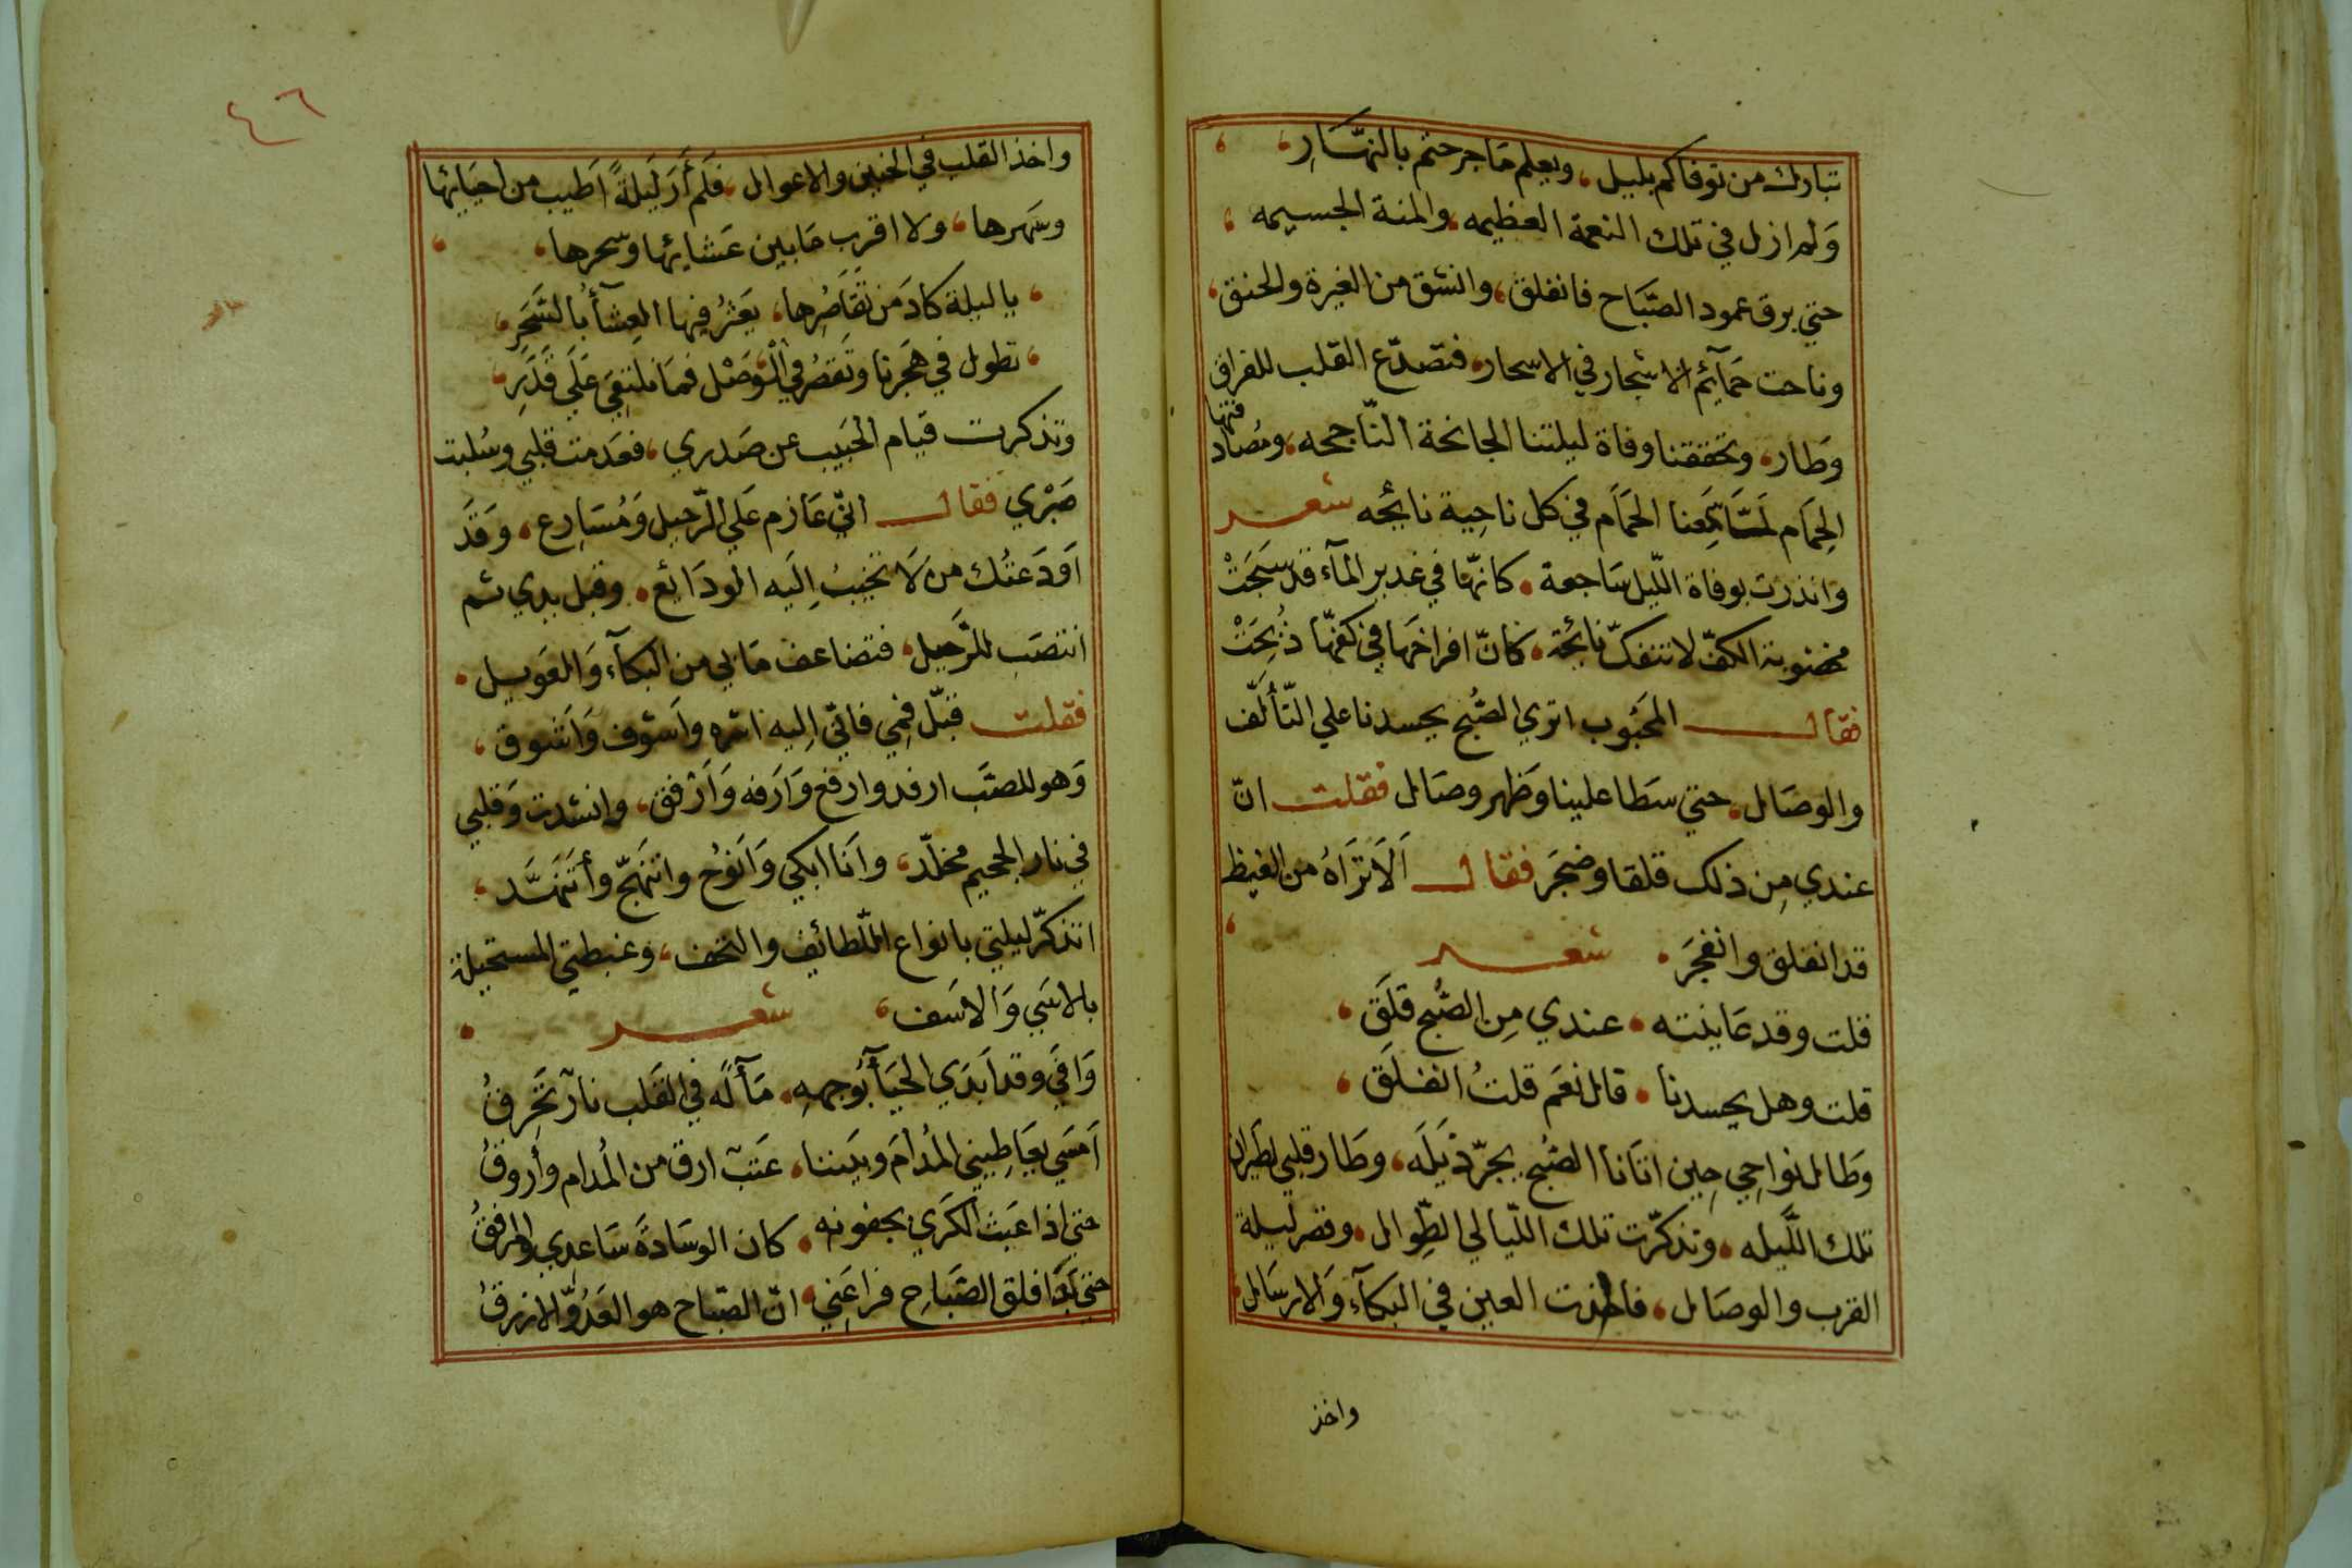 تبارك من توفاكم بليل، ويعلم ما جرحتم بالنهَار،
وَلم ازل في تلك النعمة العظيمه والمنة الجسيمه،
حتي برق عمود الصَّبَاح فانفلق، وانشق من الغيرة والحنق،
وناحت حمآئم الاشجار في الاسحار، فتصدّع القلب للفراق
وَطار، وتحققنا وفاة ليلتنا الجانحة النّاجحه، ومُصادفتها
الحِمَام لمَّا سَمِعنا الحَمَام في كل ناحِية نائحه شعر
وانذرت بوفاة اللّيل سَاجعة • كانهّا في غدير المآء قد سَبَحَتْ
مخضوبة الكفّ لا تنفكّ نائحة • كانّ افراخهَا في كفهّا ذُبِحَتْ
فقال المحَبُوب اتري الصُّبح يحسدنا علي التّألّف
والوصَال، حتي سَطا علينا وَظهر وصَال فقلت انّ
عندي مِن ذلك قلقا وضجَر فقال اَلَا ترَاهُ من الغيظ
قد انفلق وانفجَر • شعر
قلت وقد عَاينته • عندي مِن الصُّبح قلَق،
قلت وهل يحسدنا • قال نعَم قلتُ انفلَق،
وَطال نواحِي حِين اتانا الصُّبح يجرّ ذَيلَه، وطَار قلبي لطَيران
تلك اللَّيله • وتذكّرت تلك اللّيالي الطِّوال، وقصر ليلة
القرب والوصَال، فاخذت العين في البكآء وَالارسَال
واخذ
٤٦
واخذ القلب في الحنين والاعوال، فلَم أَرَ لَيلَةً اَطيب من احيَائها
وسَهرها، ولا اقرب مَا بين عَشائها وَسَحرها،
يا ليلة كادَ من تَقَاصُرِها، يَعثرُ فيها العِشآُ بالسَّحَرِ
تطول في هَجَرنا وتَقصُر في الْوَصْل فمَا نلتقي عَلَي قَدَرِ
وتذكرت قيام الحَبيب عن صَدري، فعَدمت قلبي وسُلبت
صَبْري فقال انّي عَازم عَلي الرّحيل وَمُسَارع، وَقَد
اَودَعتُك من لَا تخيبُ اِلَيه الودَايع، وقبل يدي ثم
انتصَب للرَّحيل، فتضاعف مَا بي من البكآء وَالعَويل
فقلت قبّل فمِي فانّي اِليه اشره واَشوف وَاَشوق،
وَهو للصَّب ارفد وارفع وَارَفه وَاَرْفق، وانشدت وَقلبي
في نار الجحيم مخلّد، وانَا ابكي وَاَنوُح وانتهجّ وأتَنَهَّد،
اتذكرّ ليلتي بانواع اللّطائف والتحف، وغبطتي المستحيلة
بالاسَي وَالاسَف، شعر
وَافَي وقد اَبدَي الحيَآُ بوجههِ • مَآ لَه في القَلب نارٌ تحَرقُ
اَمسَي يعَاطِيني المُدامَ وبَيننا، عَتبٌ ارق من المُدام وأروقُ
حتي اذا عَبَثَ الكَرَي بجفونه • كان الوسَادةَ سَاعدِي والمرفقُ
حتي بَدَا فلق الصَّبَاح فراعَني، انّ الصّباح هو العَدُوُّ الازرقُ